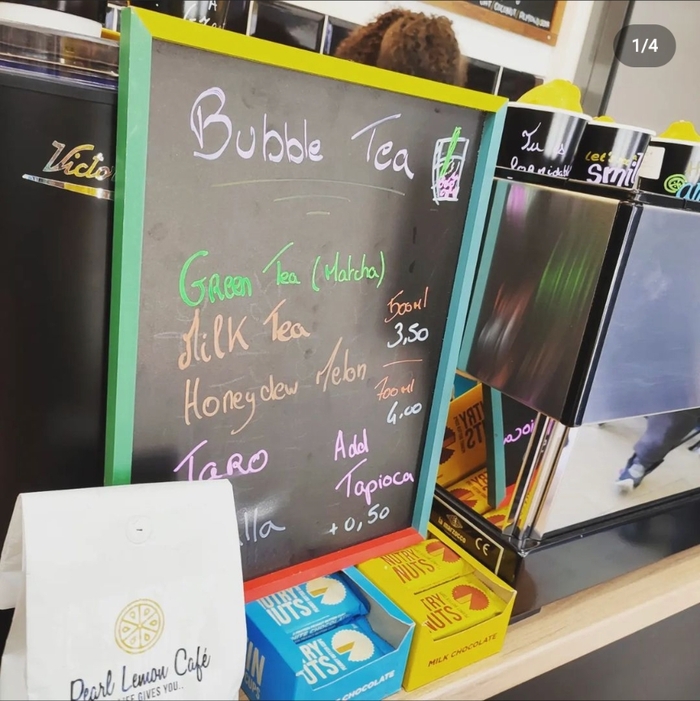 1/4
Bubble Tea
Green Tea (Matcha)
Milk Tea
Honeydew Melon
TARO
500ml
3,50
700ml
4,00
Add
Tapioca
+0,50
Victo
Tu
Let's
smil
la marzocco
CE
Pearl Lemon Café
GIVES YOU...
NUTRY
NUTS!
NUTS!
CHOCOLATE
NUTRY
NUTS
TRY
NUTS!
MILK CHOCOLATE